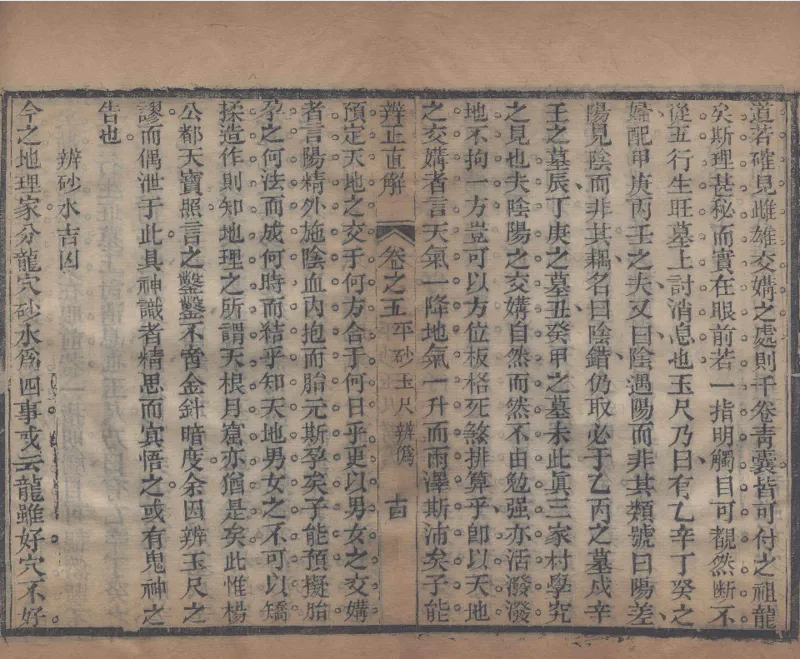 道若確見雌雄交媾之處則千卷青囊皆可付之祖龍
矣斯理甚秘而實在眼前若一指明觸目可覩然斷不
從五行生旺墓上討消息也玉尺乃曰有乙辛丁癸之
婦配甲庚丙壬之夫又曰陰遇陽而非其類號曰陽差
陽見陰而非其耦名曰陰錯仍取必于乙丙之墓戍辛
壬之墓辰丁庚之墓丑癸甲之墓未此眞三家村學究
之見也夫陰陽之交媾自然而然不由勉强亦活潑潑
地不拘一方豈可以方位板格死煞排算乎卽以天地
之交媾者言天氣一降地氣一升而雨澤斯沛矣子能
辨正直解 卷之五 平砂玉尺辨僞 十四
預定天地之交于何方合于何日乎更以男女之交媾
者言陽精外施陰血內抱而胎元斯孕矣子能預擬胎
孕之何法而成何時而結乎知天地男女之不可以矯
揉造作則知地理之所謂天根月窟亦猶是矣此惟楊
公都天寶照言之鑿鑿不啻金針暗度余因辨玉尺之
謬而偶泄于此具神識者精思而寘悟之或有鬼神之
告也
辨砂水吉凶
今之地理家分龍穴砂水爲四事或云龍雖好穴不好